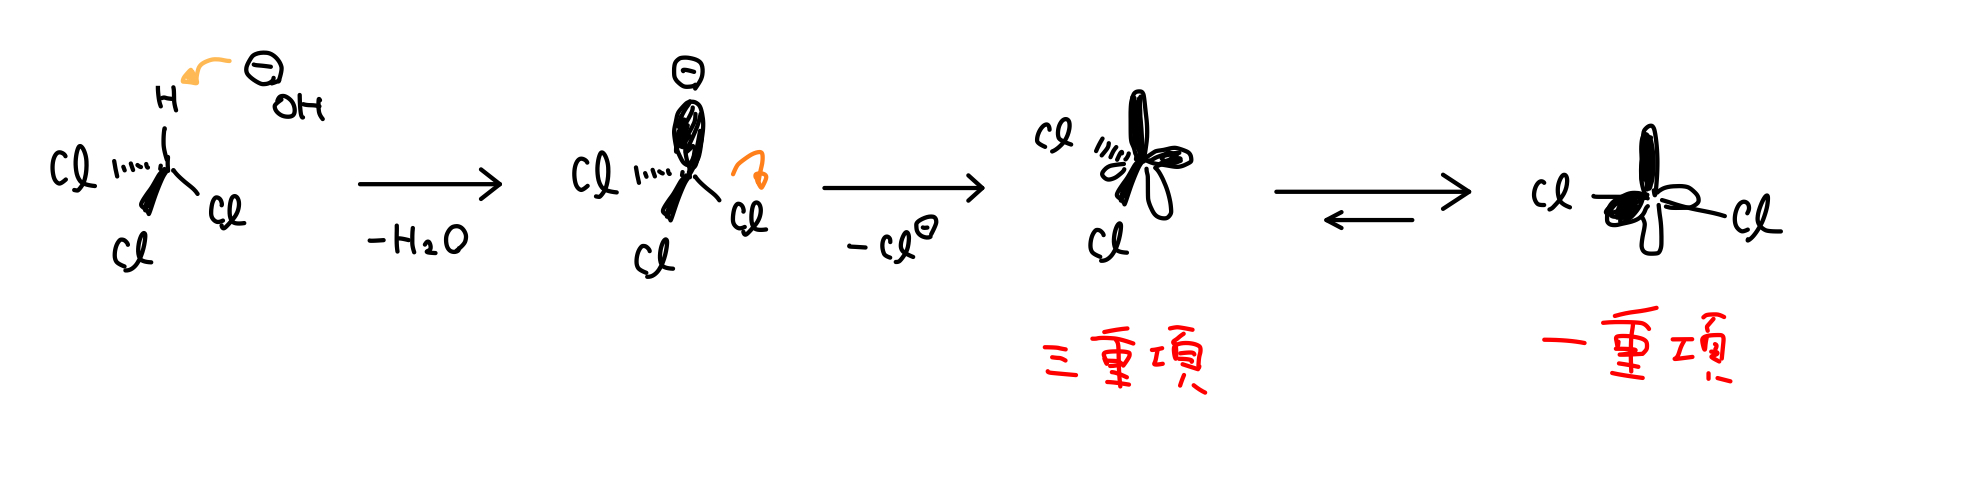 H ⊖OH
Cl Cl Cl
-H₂O
⊖
Cl Cl Cl
-Cl⊖
Cl Cl
三重項
Cl Cl
一重項